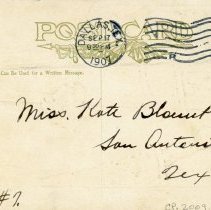 POST CARD
DALLAS, TEX.
SEP 17
1907
Can be Used for a Written Message.
Miss. Kate Blount
San Antonio
Tex
#7.
CP. 2009